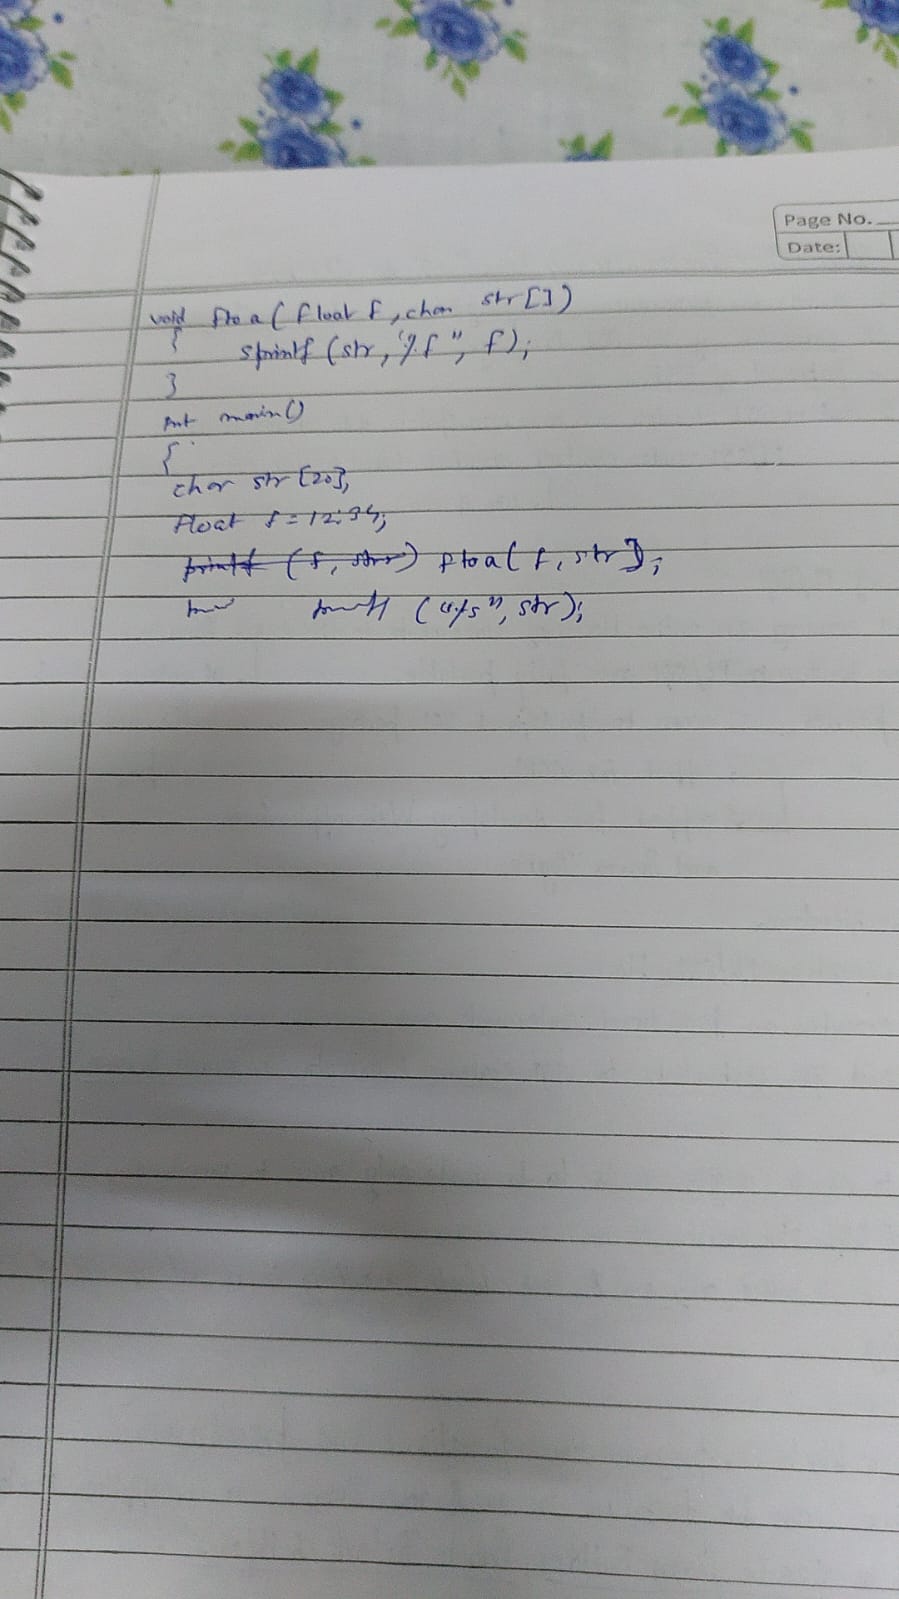 Page No.
Date:
void ftoa(float f, char str[])
{
sprintf(str, "%f", f);
}
int main()
{
char str[20];
float f = 12.34;
printf (f, str) ftoa(f, str);
printf ("%s", str);